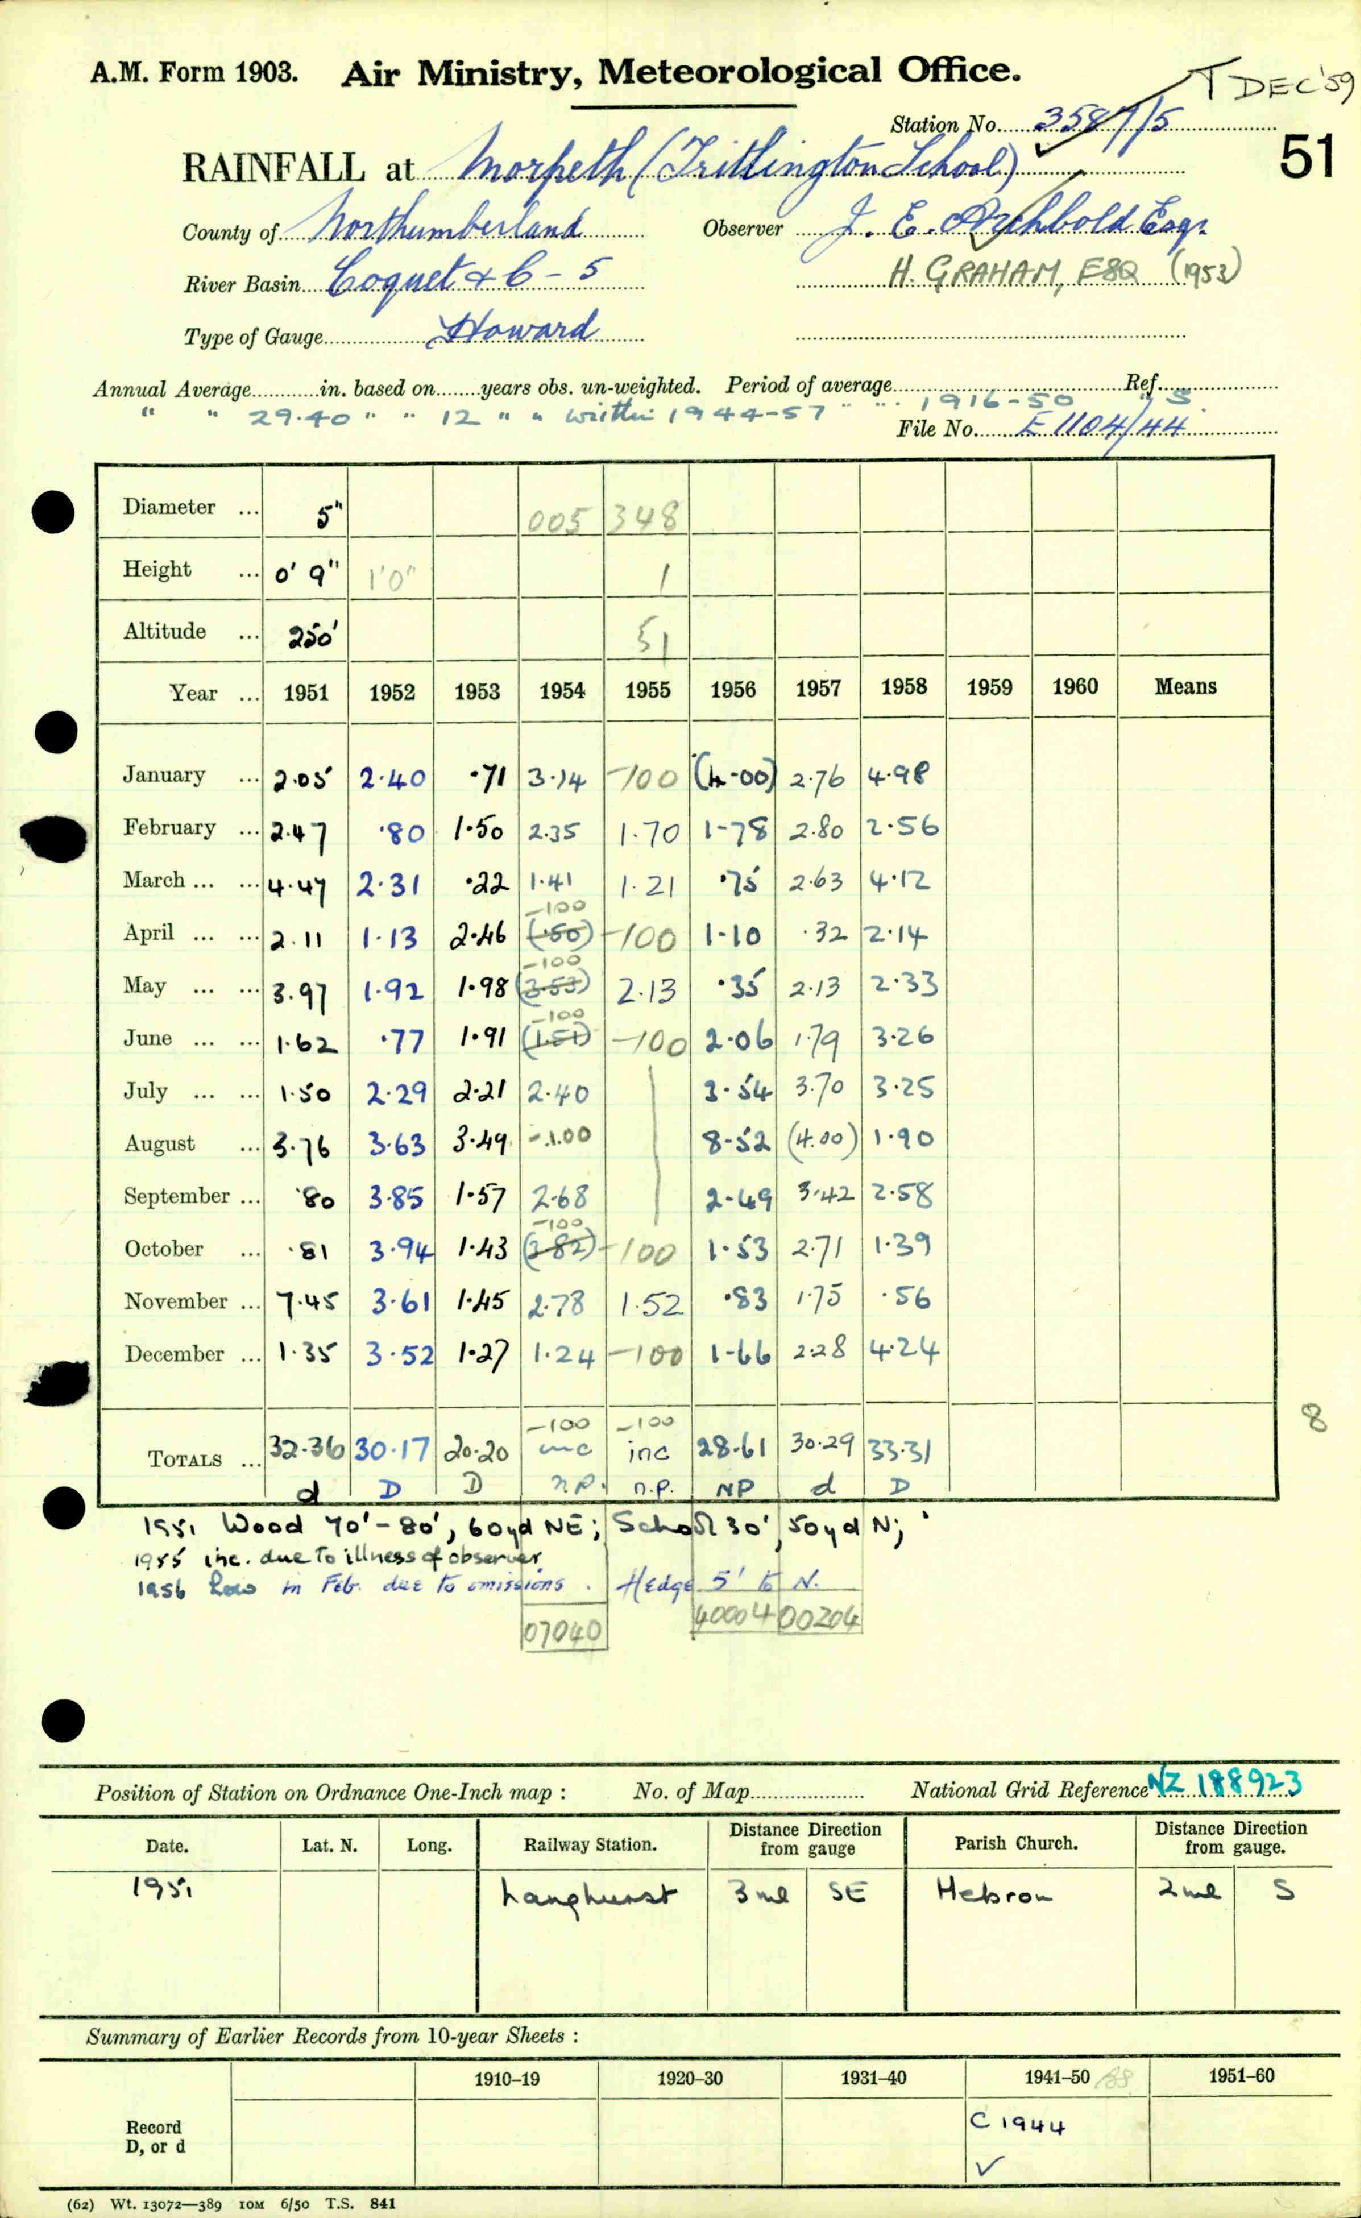 A.M. Form 1903. Air Ministry, Meteorological Office.
T DEC '59
Station No. 3587/5
51
RAINFALL at Morpeth (Tritlington School)
County of Northumberland Observer J. E. Archbold Esqr.
River Basin Coquet & C - 5 H. GRAHAM, ESQ (1953)
Type of Gauge Howard
Annual Average in. based on years obs. un-weighted. Period of average Ref.
" " 29.40 " " 12 " " within 1944-57 " " 1916-50 " S.
File No. E 1104/44
Diameter ... 5" 005 348
Height ... 0' 9" 1'0" 1
Altitude ... 250' 51
Year ... 1951 1952 1953 1954 1955 1956 1957 1958 1959 1960 Means
January ... 2.05 2.40 .71 3.14 -100 (4.00) 2.76 4.98
February ... 2.47 .80 1.50 2.35 1.70 1.78 2.80 2.56
March ... ... 4.47 2.31 .22 1.41 1.21 .75 2.63 4.12
-100
April ... ... 2.11 1.13 2.46 (.50) -100 1.10 .32 2.14
-100
May ... ... 3.97 1.92 1.98 (3.53) 2.13 .35 2.13 2.33
-100
June ... ... 1.62 .77 1.91 (1.51) -100 2.06 1.79 3.26
July ... ... 1.50 2.29 2.21 2.40 3.54 3.70 3.25
August ... 3.76 3.63 3.49 -100 8.52 (4.00) 1.90
September ... .80 3.85 1.57 2.68 2.49 3.42 2.58
-100
October ... .81 3.94 1.43 (3.82) -100 1.53 2.71 1.39
November ... 7.45 3.61 1.45 2.78 1.52 .83 1.75 .56
December ... 1.35 3.52 1.27 1.24 -100 1.66 2.28 4.24
-100 -100
8
TOTALS ... 32.36 30.17 20.20 inc inc 28.61 30.29 33.31
d D D n.p. n.p. NP d D
1951 Wood 70'-80', 60yd NE; School 30', 50yd N;
1955 inc. due to illness of observer
1956 Low in Feb. due to omissions. Hedge 5' to N.
07040 40004 00204
Position of Station on Ordnance One-Inch map : No. of Map National Grid Reference NZ 188923
Date. Lat. N. Long. Railway Station. Distance from gauge Direction Parish Church. Distance from gauge. Direction
1951 Langhurst 3 ml SE Hebron 2 ml S
Summary of Earlier Records from 10-year Sheets :
1910–19 1920–30 1931–40 1941–50 1951–60
Record D, or d C 1944
(62) Wt. 13072—389 10M 6/50 T.S. 841